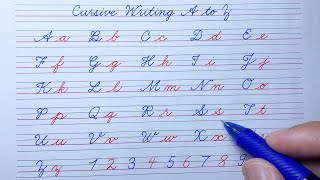 Cursive Writing A to Z
A a B b C c D d E e
F f G g H h I i J j
K k L l M m N n O o
P p Q q R r S s T t
U u V v W w X x
Z z 1 2 3 4 5 6 7 8 9